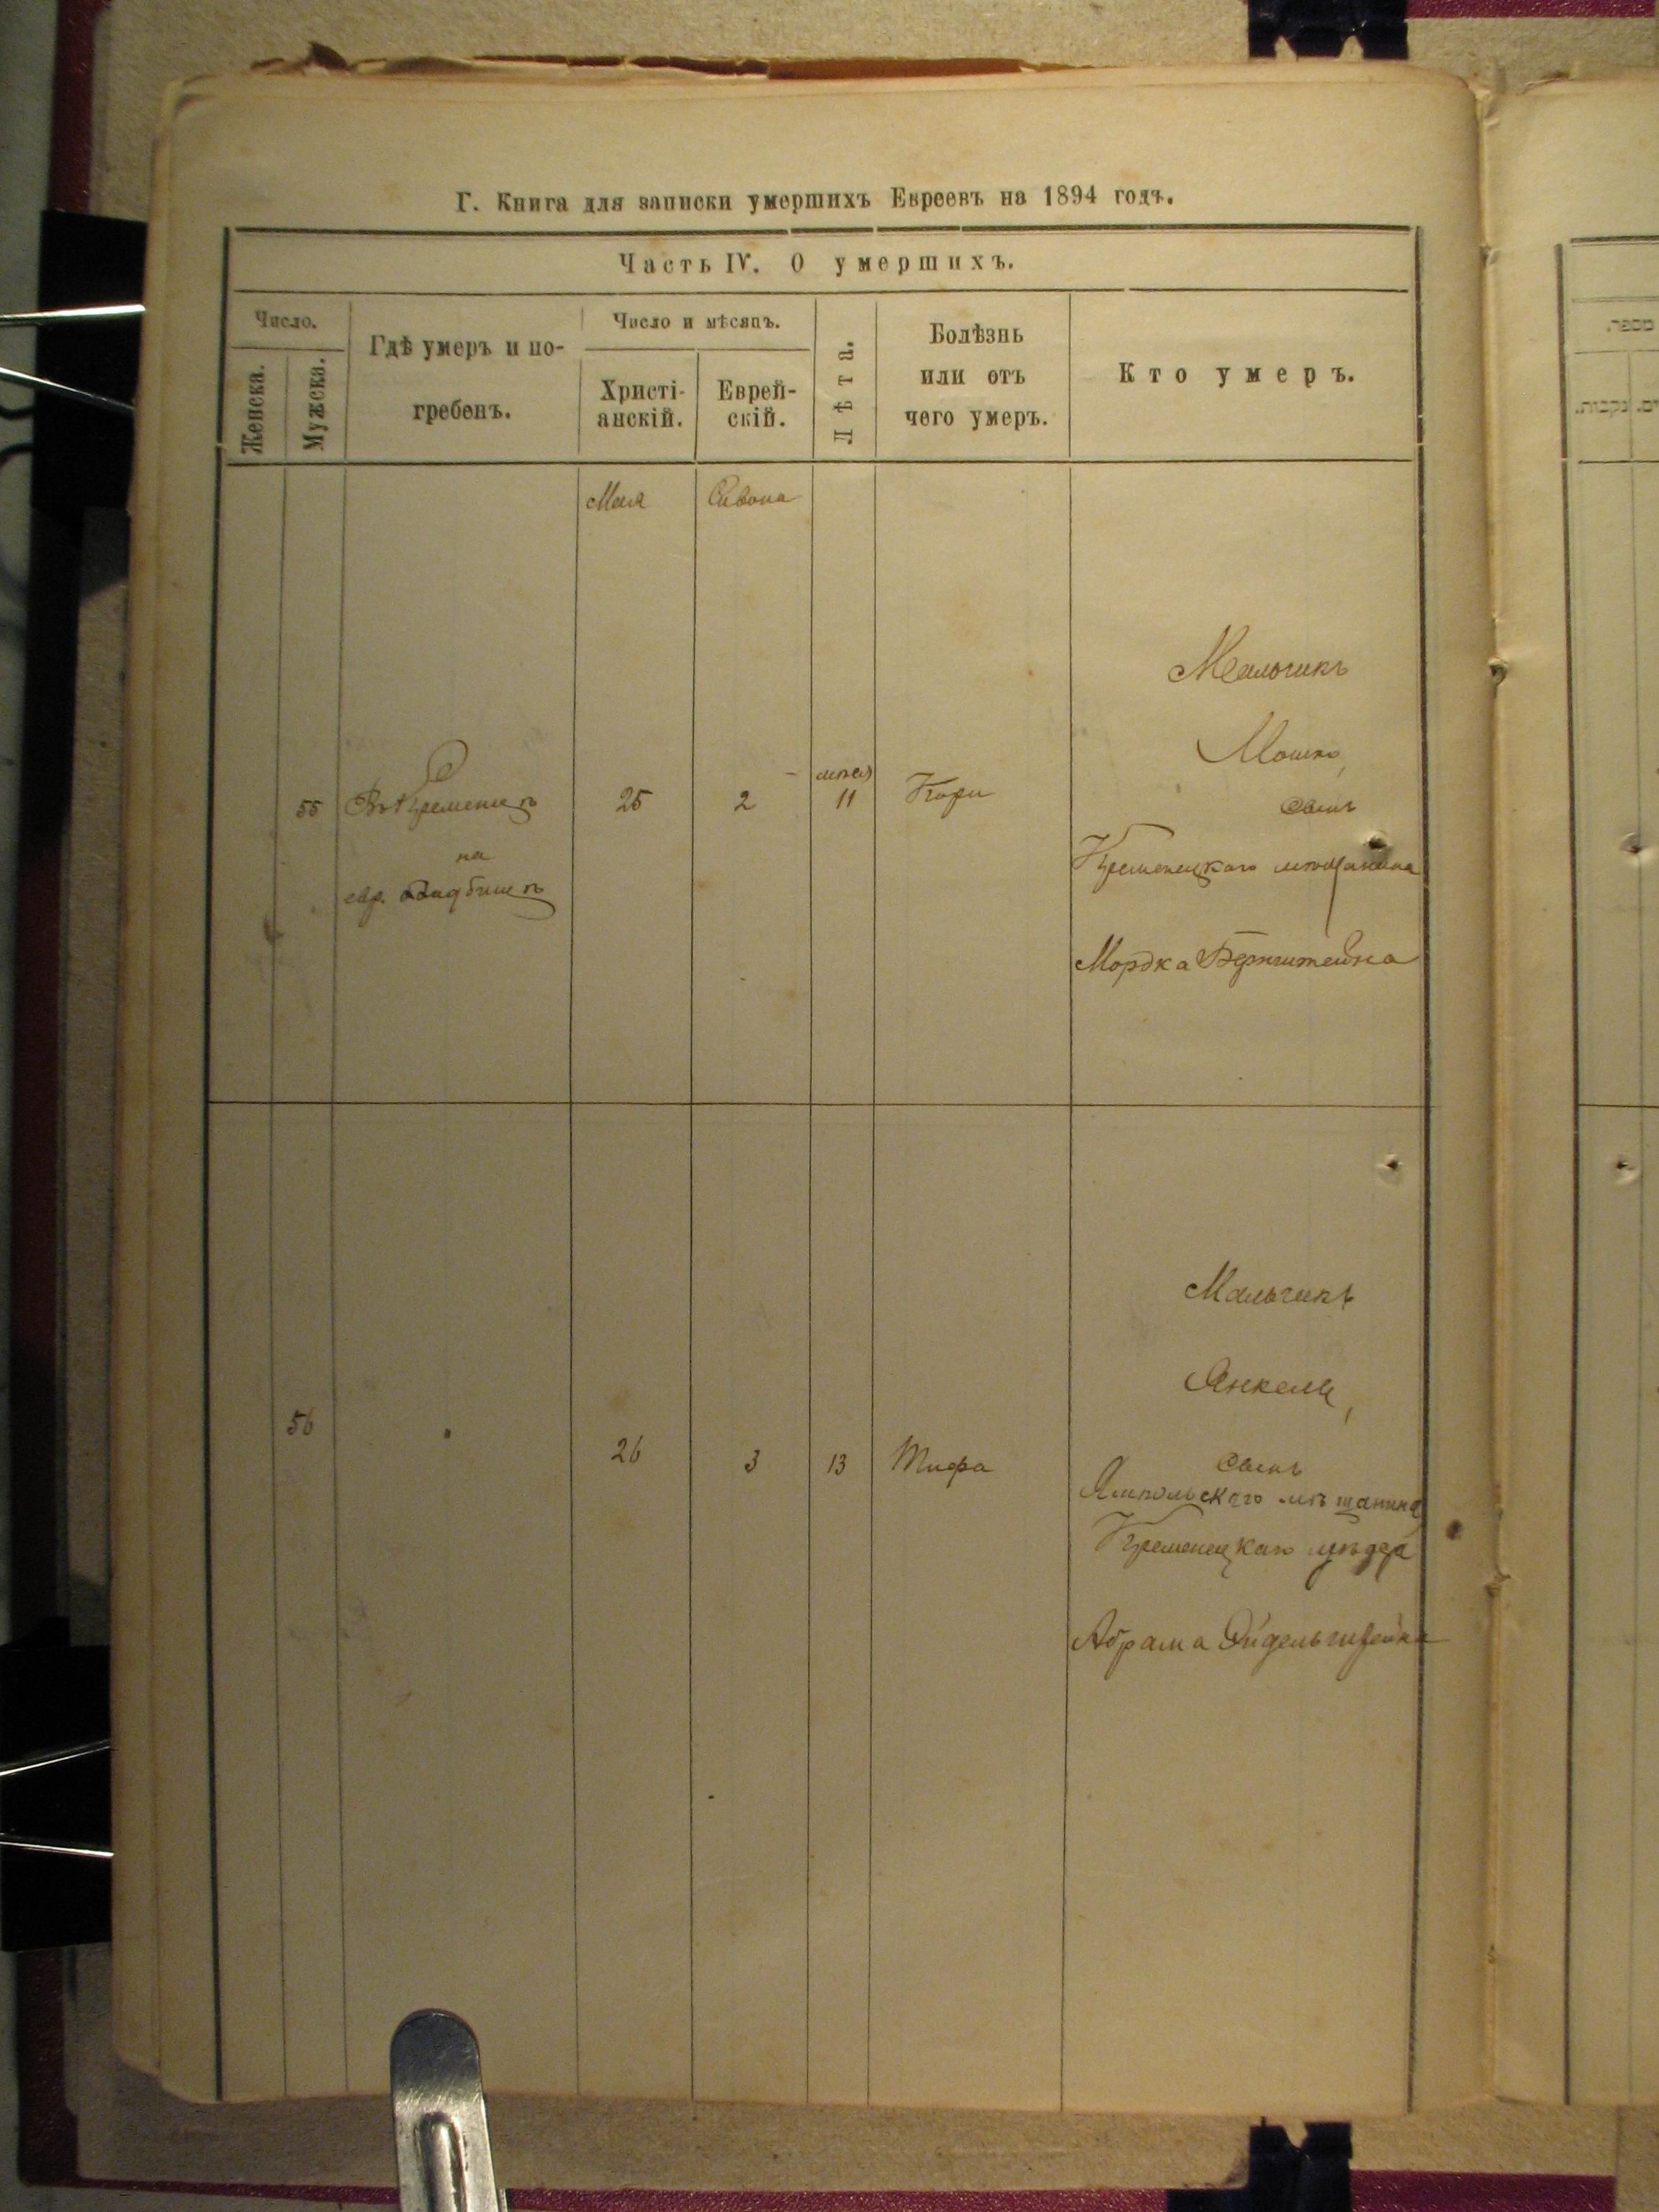 Г. Книга для записки умершихъ Евреевъ на 1894 годъ.
Часть IV. О умершихъ.
Число.
Женска.
Мужска.
Гдѣ умеръ и по-
гребенъ.
Число и мѣсяцъ.
Христі-
анскій.
Еврей-
скій.
Лѣта.
Болѣзнь
или отъ
чего умеръ.
Кто умеръ.
Мая
Сивона
55
Въ Кременцѣ
на
евр. кладбищѣ
25
2
11
Кори
Мальчикъ
Мошко,
сынъ
Кременецкаго мѣщанина
Мордка Бернштейна
56
26
3
13
Тифа
Мальчикъ
Янкель,
сынъ
Ямпольскаго мѣщанина
Кременецкаго уѣзда
Абрама Эйдельштейна
מספר.
נקבות.